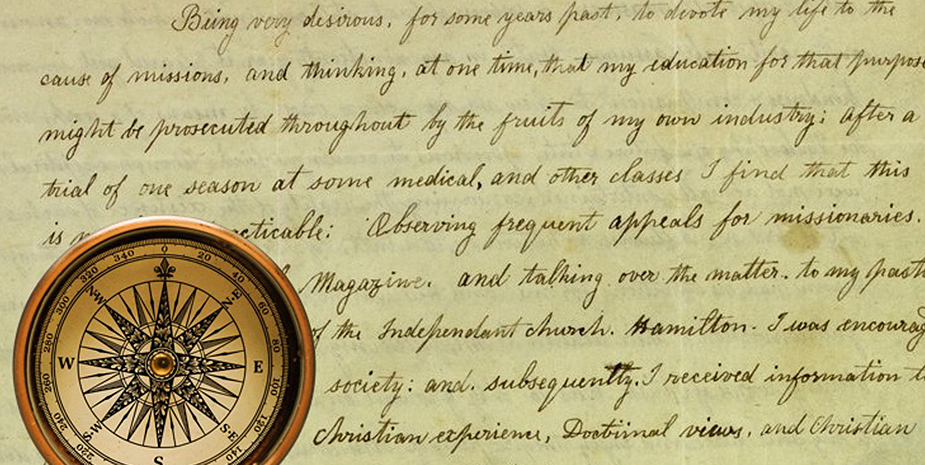 Being very desirous, for some years past, to devote my life to the
cause of missions, and thinking, at one time, that my education for that purpose
might be prosecuted throughout by the fruits of my own industry; after a
trial of one season at some medical, and other classes I find that this
is cticable: Observing frequent appeals for missionaries.
Magazine. and talking over the matter. to my past
of the Independant church. Hamilton. I was encourag
society: and. subsequently. I received information t
Christian experience, Doctrinal views, and Christian
0 20 40 60 80 100 120 240 260 280 300 320 340
N-W N-E W E S-W S-E S